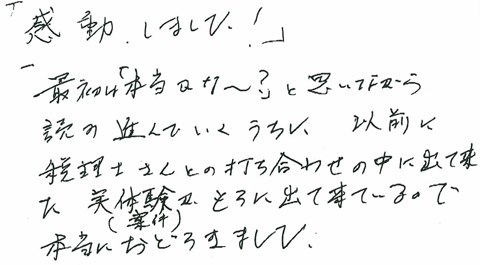 「感動.しました.!」
最初は「本当カナ〜?」と思いながら
読み進んでいくうちに、以前に
税理士さんとの打ち合わせの中に出て来
た実体験がもろに出て来ているので
(案件)
本当におどろきました.